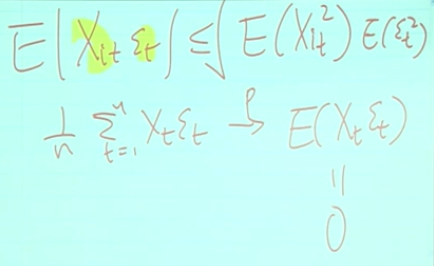 E|X_{it} ε_t| ≤ √E(X_{it}^2) E(ε_t^2)
1/n Σ_{t=1}^n X_t ε_t →^p E(X_t ε_t)
||
0